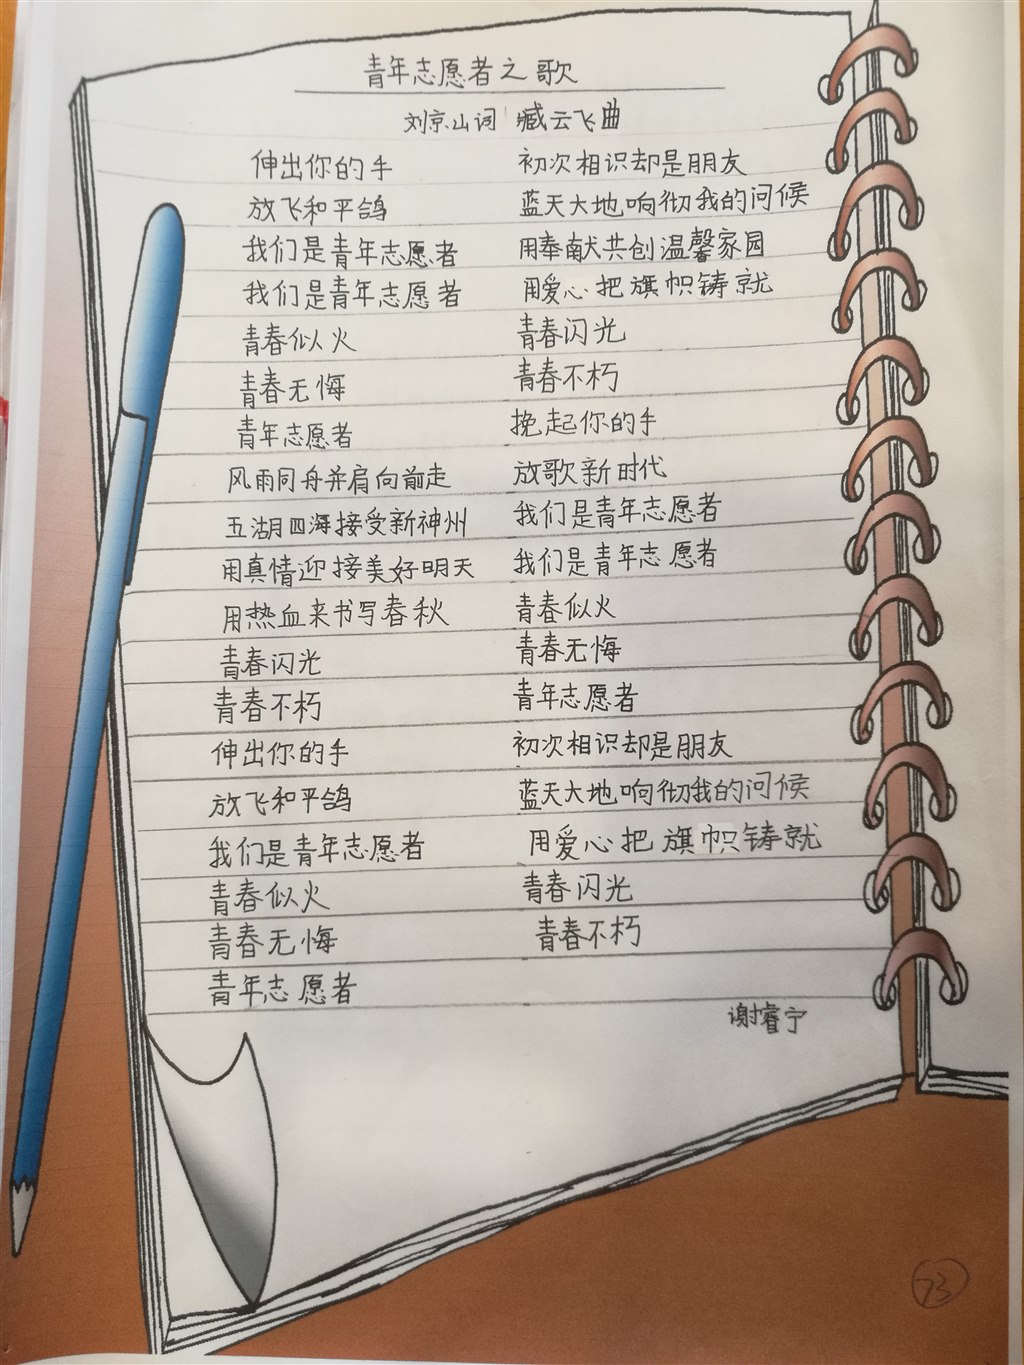 青年志愿者之歌
刘京山词 臧云飞曲
伸出你的手
放飞和平鸽
我们是青年志愿者
我们是青年志愿者
青春似火
青春无悔
青年志愿者
风雨同舟并肩向前走
五湖四海接受新神州
用真情迎接美好明天
用热血来书写春秋
青春闪光
青春不朽
伸出你的手
放飞和平鸽
我们是青年志愿者
青春似火
青春无悔
青年志愿者
初次相识却是朋友
蓝天大地响彻我的问候
用奉献共创温馨家园
用爱心把旗帜铸就
青春闪光
青春不朽
挽起你的手
放歌新时代
我们是青年志愿者
我们是青年志愿者
青春似火
青春无悔
青年志愿者
初次相识却是朋友
蓝天大地响彻我的问候
用爱心把旗帜铸就
青春闪光
青春不朽
谢睿宁
73